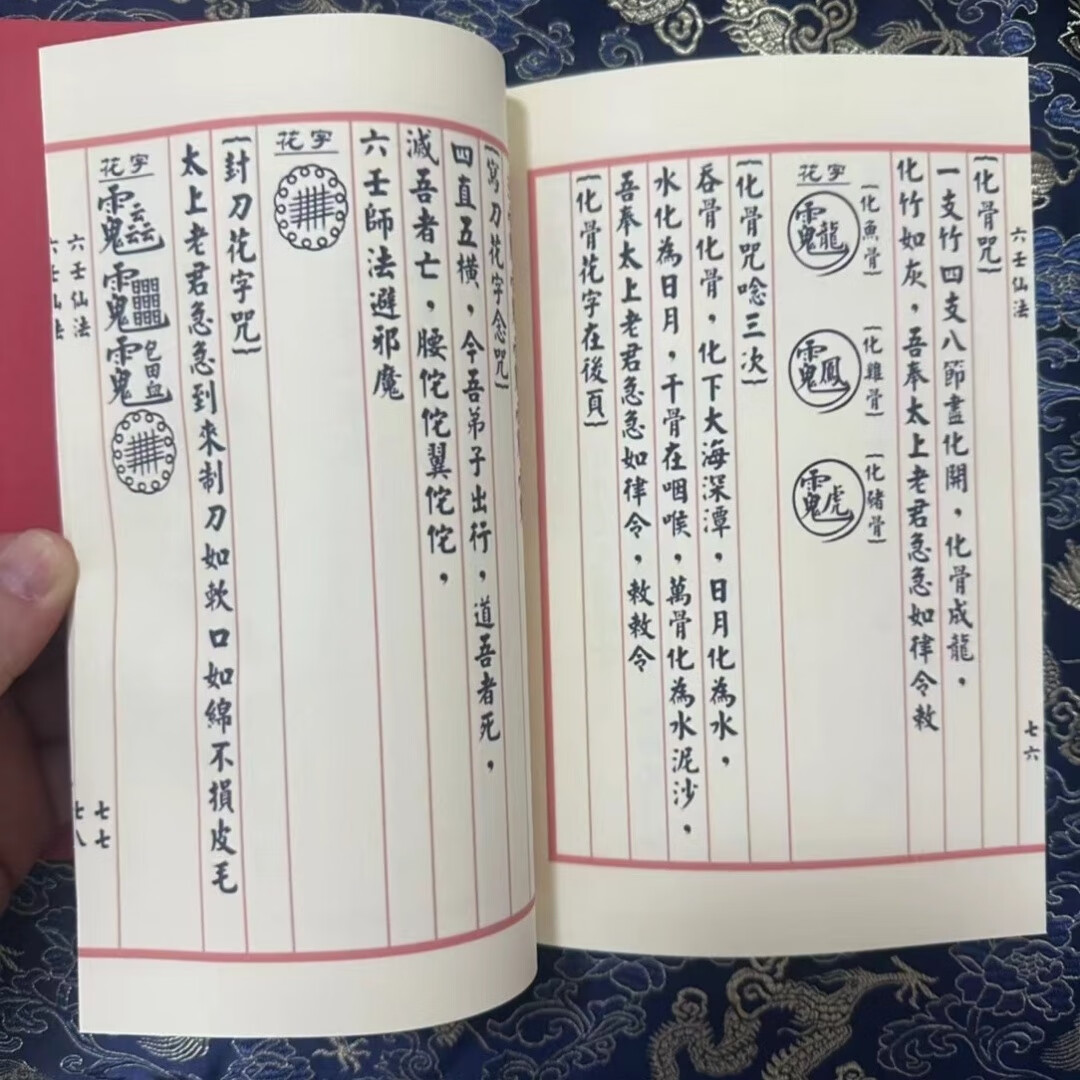 六壬仙法
七六
{化骨咒}
一支竹四支八節盡化開，化骨成龍，
化竹如灰，吾奉太上老君急急如律令敕
{化魚骨}
{化雞骨}
{化豬骨}
花字
龍
鳳
虎
{化骨咒唸三次}
吞骨化骨，化下大海深潭，日月化為水，
水化為日月，千骨在咽喉，萬骨化為水泥沙，
吾奉太上老君急急如律令，敕敕令
{化骨花字在後頁}
{寫刀花字念咒}
四直五橫，今吾弟子出行，道吾者死，
滅吾者亡，腰佗佗翼佗佗，
六壬師法避邪魔
花字
{封刀花字咒}
太上老君急急到來制刀如軟口如綿不損皮毛
花字
六壬仙法
七七
六壬仙法
七八